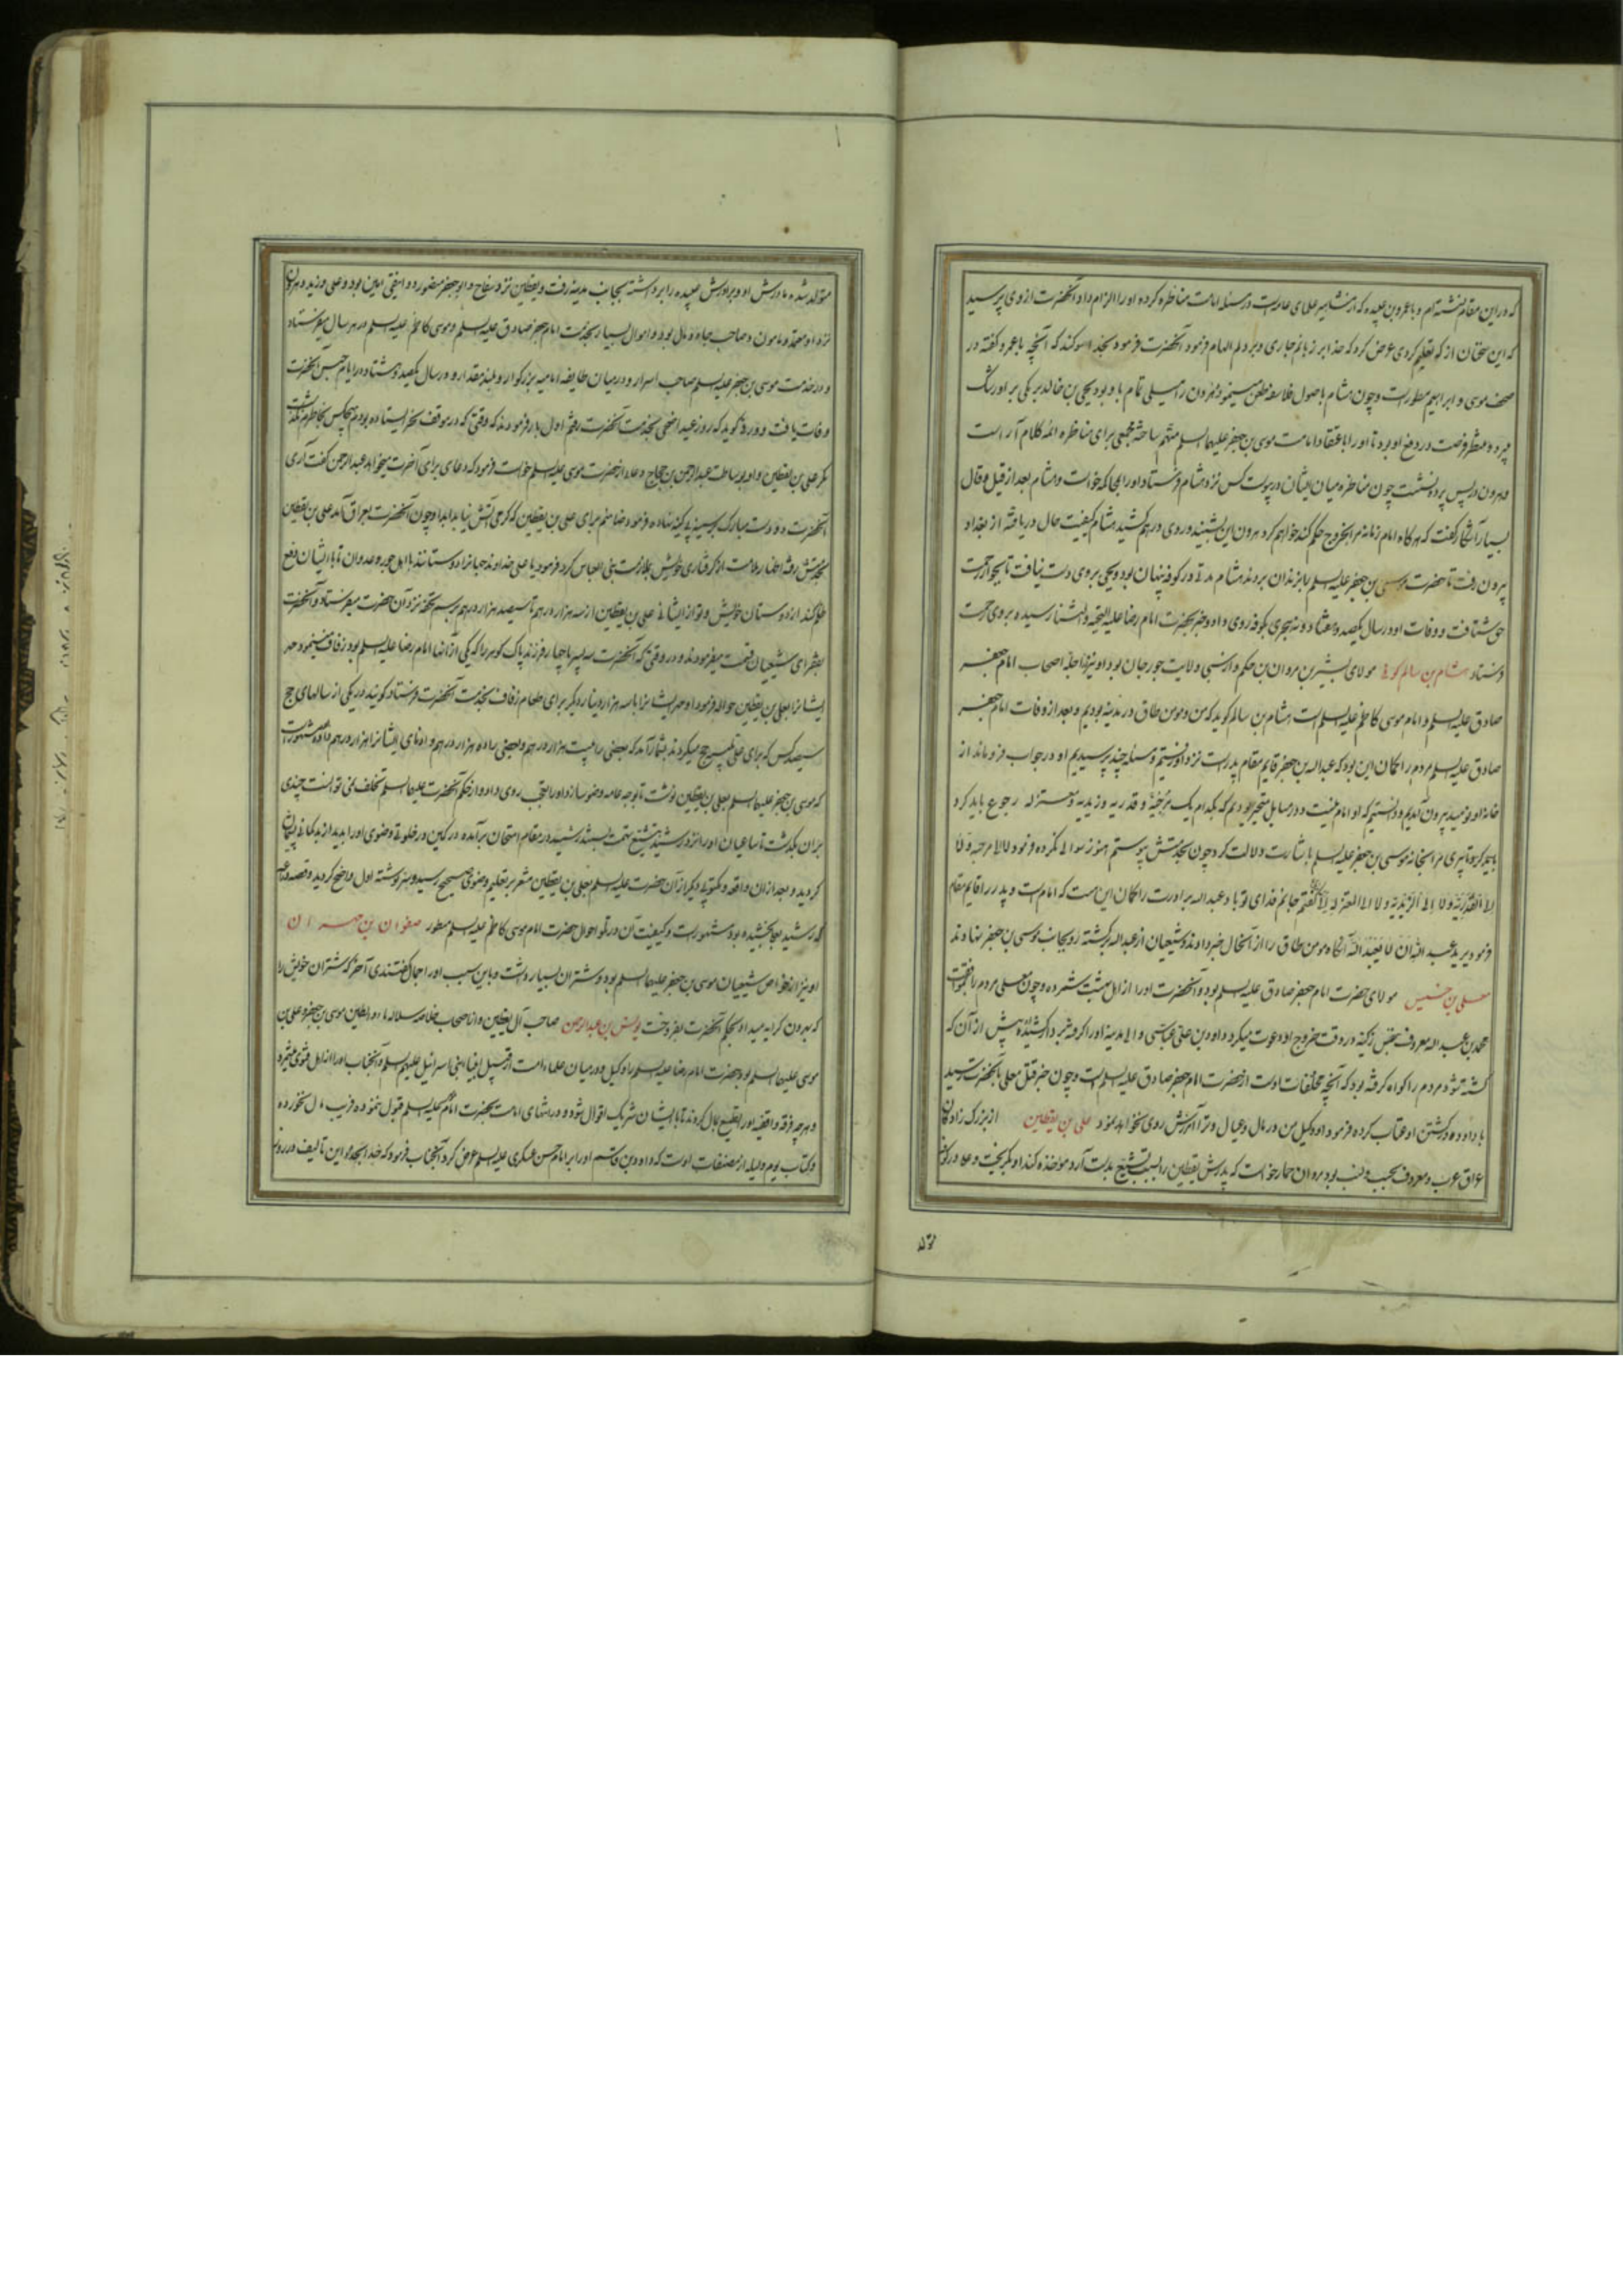 که در این مقام نشسته‌ام و با عمرو بن عبیده که از مشاهیر علمای عامه است در مسئله امامت مناظره کرده او را الزام داد آنحضرت از وی پرسید
که این سخنان از که تعلیم کردی عرض کرد که خدا بر زبانم جاری و بر دلم الهام فرمود آنحضرت فرمود بخدا سوکند که آنچه با عمرو کفته در
صحف موسی و ابراهیم مسطور است و چون هشام با صول فلاسفه طعن مینمود و هرون را میلی تمام با و بود یحیی بن خالد برمکی بر او رشک
میبرد و منتظر فرصت در دفع او بود تا او را با عتقاد امامت موسی بن جعفر علیهما السلم متهم ساخته مجمعی برای مناظره ائمه کلام آراست
و هرون در پس پرده نشست چون مناظره میان ایشان در پیوست کس نزد هشام فرستاد او را بجا که خواست و هشام بعد از قیل و قال
بسیار آشکار کفت که هر کاه امام زمانه مرا بخروج حکم کند خواهم کرد هرون این بشنید و روی در هم کشید هشام کیفیت حال دریافته از بغداد
بیرون رفت تا حضرت موسی بن جعفر علیه السلم بزندان بردند هشام مدتی در کوفه پنهان بود و یحیی بر وی دست نیافت تا بجوار رحمت
حق شتافت و وفات او در سال یکصد و هفتاد و نه هجری بکوفه روی داد و خبر بحضرت امام رضا علیه التحیه و الثنا رسیده بر وی رحمت
فرستاد هشام بن سالم کوفی مولای بشیر بن مروان بن حکم و از سبی ولایت جورجان بود او نیز از اجله اصحاب امام جعفر
صادق علیه السلم و امام موسی کاظم علیه السلم است هشام بن سالم کوید که من و مومن طاق در مدینه بودیم و بعد از وفات امام جعفر
صادق علیه السلم مردم را کمان این بود که عبدالله بن جعفر قایم مقام پدر است نزد او رفتیم و مسئله چند پرسیدیم او در جواب فرو ماند از
خانه او نومید بیرون آمدیم و دانستیم که او امام نیست و در مسایل متحیر بودیم که بکدام یک مرجئه و قدریه و زیدیه و معتزله رجوع باید کرد
تا پیری مرا بخانه موسی بن جعفر علیه السلم باشارت دلالت کرد چون بخدمتش پیوستم هنوز سوالی نکرده فرمود لا الی مرجئه ولا
الی القدریه ولا الی الزیدیه ولا الی المعتزله الی کفتم جانم فدای تو باد عبدالله برادرت را کمان این است که امام است و پدر را قایم مقام
فرمود یرید عبدالله ان لا یعبد الله آنکاه مومن طاق را از آنحال خبر دادند و شیعیان از عبدالله برکشته رو بجانب موسی بن جعفر نهادند
معلی بن خنیس مولای حضرت امام جعفر صادق علیه السلم بود و آنحضرت او را از اهل بهشت شمرده و چون معلی مردم را بمتابعت
محمد بن عبدالله معروف بنفس زکیه در وقت خروج او دعوت میکرد داود بن علی عباسی والی مدینه او را کرفته بر دار کشید پیش از آن که
کشته شود مردم را کواه کرفته بود که آنچه مخلفات اوست از حضرت امام جعفر صادق علیه السلم است و چون خبر قتل معلی بآنحضرت رسید
با داود در کشتن او عتاب کرده فرمود او وکیل من در مال و عیال و ترا آمرزش روی نخواهد نمود علی بن یقطین از بزرک زادکان
عراق عرب و معروف بحسب و نسب بود مروان حمار خواست که پدرش یقطین را بسبب تشیع بدست آرد مواخذه کند او بکریخت و علی در کوفه
۵۳
متولد شده مادرش او و برادرش عبیده را برداشته بجانب مدینه رفت و یقطین نزد سفاح و ابو جعفر منصور دوانیقی امین بود و علی وزید و هرون
نزد او معتمد و مامون و صاحب جاه و مال بود و اموال بسیار بخدمت امام جعفر صادق علیه السلم و موسی کاظم علیه السلم در هر سال میفرستاد
و در خدمت موسی بن جعفر علیه السلم صاحب اسرار و در میان طایفه امامیه بزرکوار و بلند مقدار و در سال یکصد و هشتاد در ایام حبس آنحضرت
وفات یافت داود رقی کوید که روز عید اضحی بخدمت آنحضرت رفتم اول بار فرمودند که وقتی که در موقف نحر ایستاده بودم هیچکس بخاطرم نکذشت
مکر علی بن یقطین و او بوساطت عبدالرحمن بن حجاج دعا از حضرت موسی علیه السلم خواست فرمود که دعای برای آخرت میخواهد عبدالرحمن کفت آری
آنحضرت دو دست مبارک بر سینه بی کینه نهاده فرمود ضامنم برای علی بن یقطین که کرمی آتش نیابد ابدا و چون آنحضرت بعراق آمد علی بن یقطین
بخدمتش رفته اظهار ملامت از کرفتاری خویش بملازمت بنی العباس کرد فرمود یا علی خداوند جهانرا دوستانند با اهل جور و عدوان تا با ایشان دفع
ظلم کند از دوستان خویش و تو از ایشانی علی بن یقطین از سه هزار درهم تا سیصد هزار درهم برسم تحفه نزد آن حضرت میفرستاد و آنحضرت
بفقرای شیعیان قسمت میفرمودند و در وقتی که آنحضرت سه پسر یا چهار فرزند پاک کوهر را که یکی از آنها امام رضا علیه السلم بود زفاف مینمود مهر
ایشانرا بعلی بن یقطین حواله فرمود او مهر ایشانرا با سه هزار دینار دیکر برای طعام زفاف بخدمت آنحضرت فرستاد کویند در یکی از سالهای حج
سیصد کس که برای علی تلبیه حج میکردند بشمار آمد که بعضی را بیست هزار درهم و بعضی را ده هزار درهم و ادنای ایشانرا هزار درهم داده مشهور است
که موسی بن جعفر علیهما السلم بعلی بن یقطین نوشت تا بوجه عامه وضو سازد او را تعجب روی داد و از حکم آنحضرت علیها السلم تخلف نمی توانست چندی
بران بکذشت تا ساعیان او را نزد رشید بتشیع متهم رشید در مقام امتحان برآمده در کمین در خلوتی وضوی او را بدید از بدکمانی پشیمان
کردید و بعد از ان واقعه مکتوبی دیکر از آن حضرت علیه السلم بعلی بن یقطین مشعر بر تعلیم وضوی صحیح رسید و سر نوشته اول واضح کردید و قصه دراعه
که رشید بعلی بخشیده بود مشهور است و کیفیت آن در ذکر احوال حضرت امام موسی کاظم علیه السلم مسطور صفوان بن مهران
او نیز از خواص شیعیان موسی بن جعفر علیهما السلم بود و شتران بسیار داشت و باین سبب او را جمال کفتندی آخر که شتران خویش را
که بهرون کرایه میداد بحکم آنحضرت بفروخت یونس بن عبدالرحمن صاحب آل یقطین و از اصحاب خلاصه سلاله ماء و طین موسی بن جعفر و علی بن
موسی علیهما السلم بود حضرت امام رضا علیه السلم را وکیل و در میان علماء امت از قبیل انبیاء بنی اسرائیل علیهم السلم و آنجناب او را از اهل فتوی میشمرد
و هر چه فرقه واقفیه او را تطمیع بمال کردند تا با ایشان شریک اقوال شود و در اثنای امامت بحضرت امام علیه السلم قبول ننموده فریب مال نخورده
و کتاب یوم و لیله از مصنفات اوست که داود بن قاسم او را بر امام حسن عسکری علیه السلم عرض کرد آنجناب فرمود که خدا بجد مر این تالیف در روز